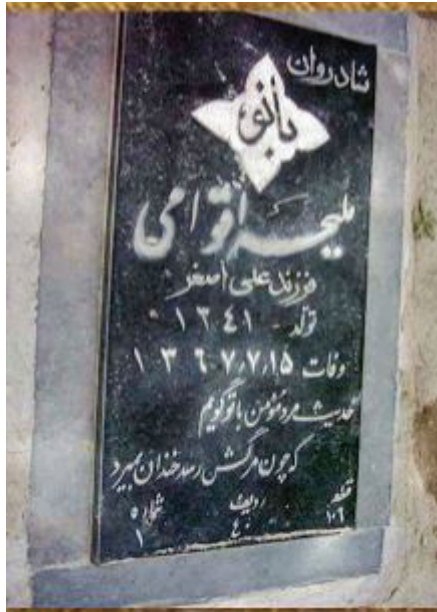 شادروان
بانوی
ملیحه اقوامی
فرزند علی اصغر
تولد ۱۳٤۱
وفات ۱۳٦۷٫۷٫۱۵
حدیث مرد مؤمن با تو گویم
که چون مرگش رسد خندان بمیرد
قطعه ردیف شماره
۱۰٦ ٤۰ ۱